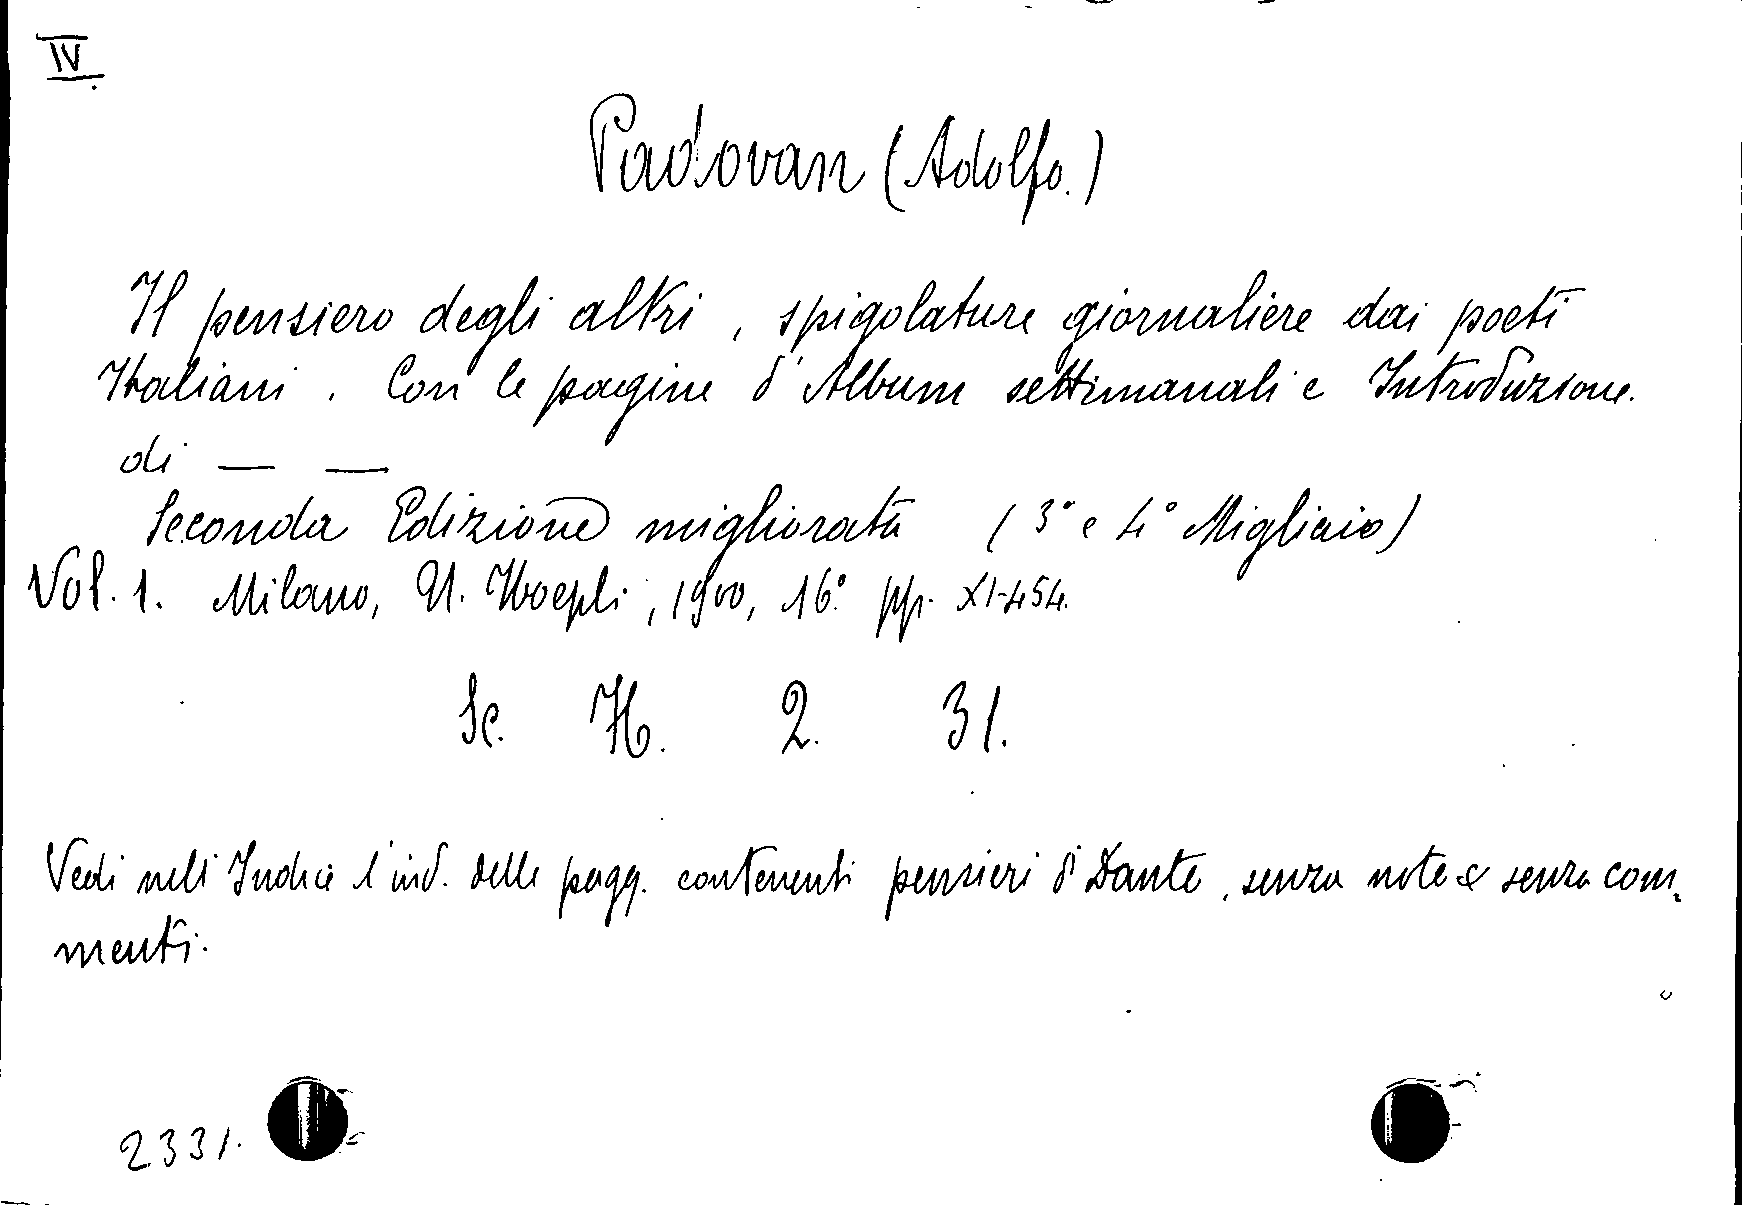 IV.
Padovan (Adolfo.)
Il pensiero degli altri, spigolature giornaliere dai poeti
Italiani. Con le pagine d'Album settimanali e Introduzione.
di — —
Seconda Edizione migliorata (3° e 4° Migliaio)
Vol. 1. Milano, U. Hoepli, 1900, 16° pp. XI-454.
Sc. H. 2. 31.
Vedi nell'Indice l'ind. delle pagg. contenenti pensieri di Dante, senza note e senza com-
menti.
2331.